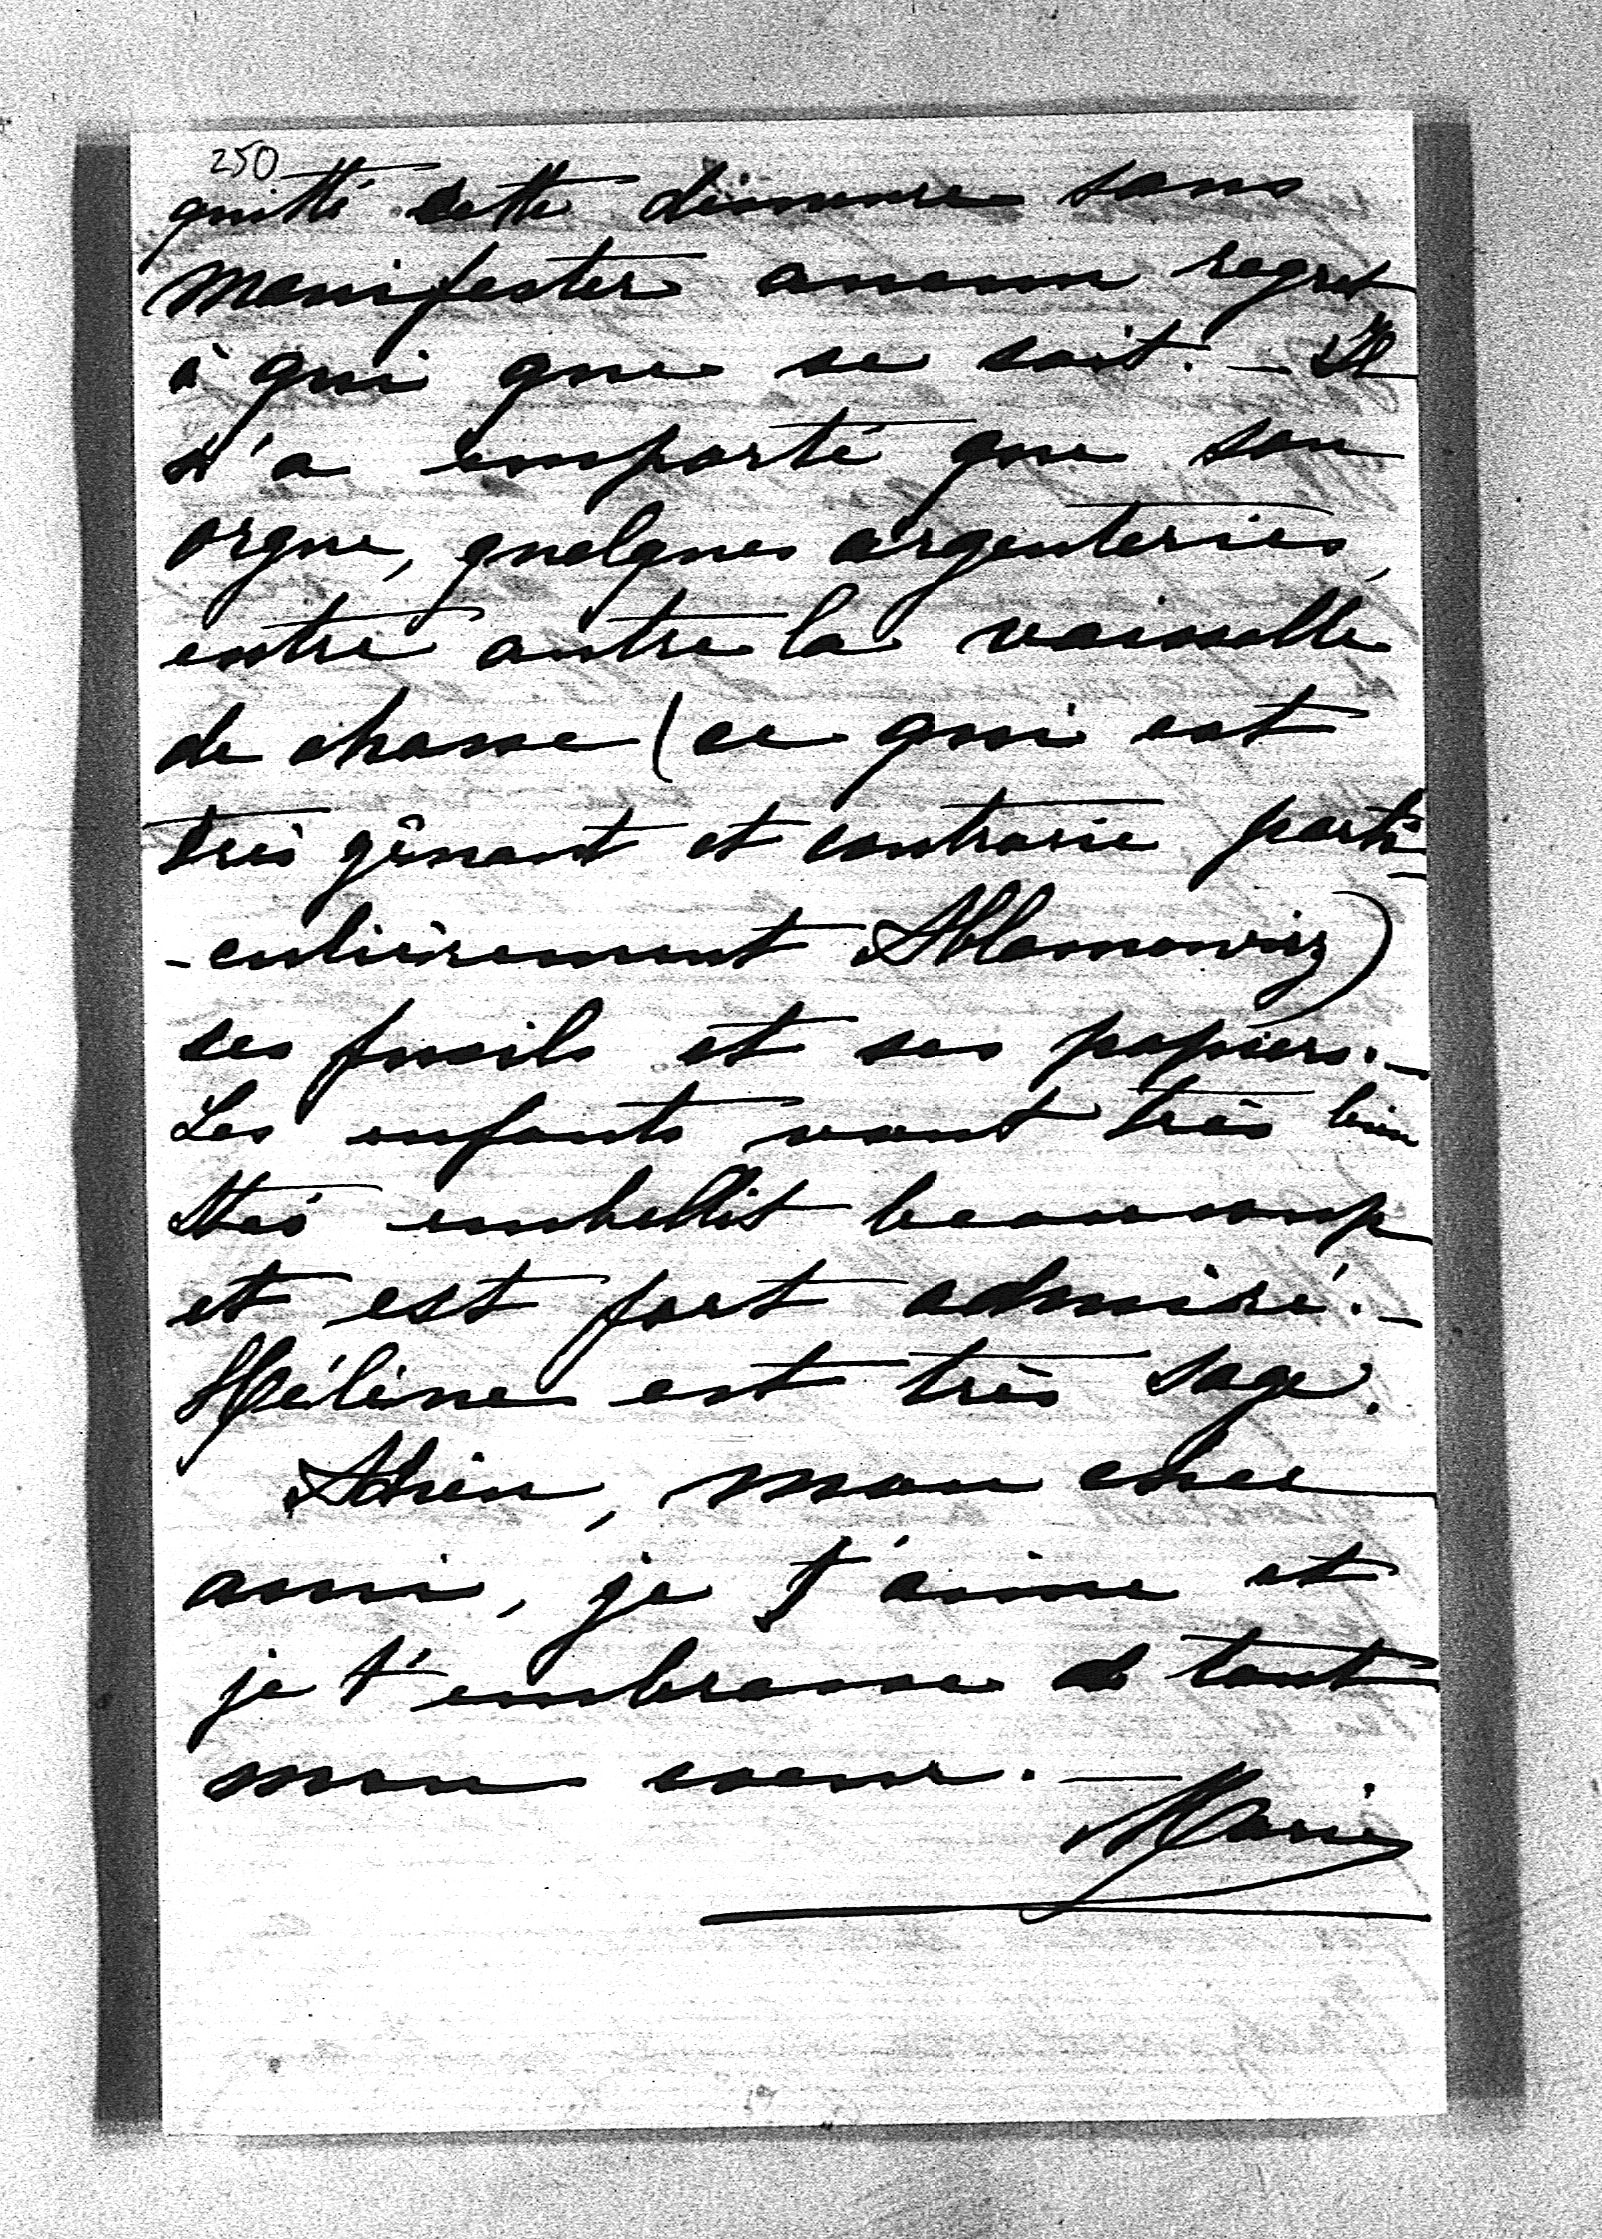 250
quitté cette demeure sans
manifester aucun regret
à qui que se soit. – Il
n'a emporté que son
orgue, quelques argenteries,
entre autre la vaisselle
de chasse (ce qui est
très gênant et contrarie parti-
-culièrement Ablamowicz)
ses fusils et ses papiers. –
Les enfants vont très bien
embellit beaucoup
et est fort admiré. –
Hélène est très sage.
Adieu, mon cher
ami, je t'aime et
je t'embrasse de tout
mon coeur. –
Marie